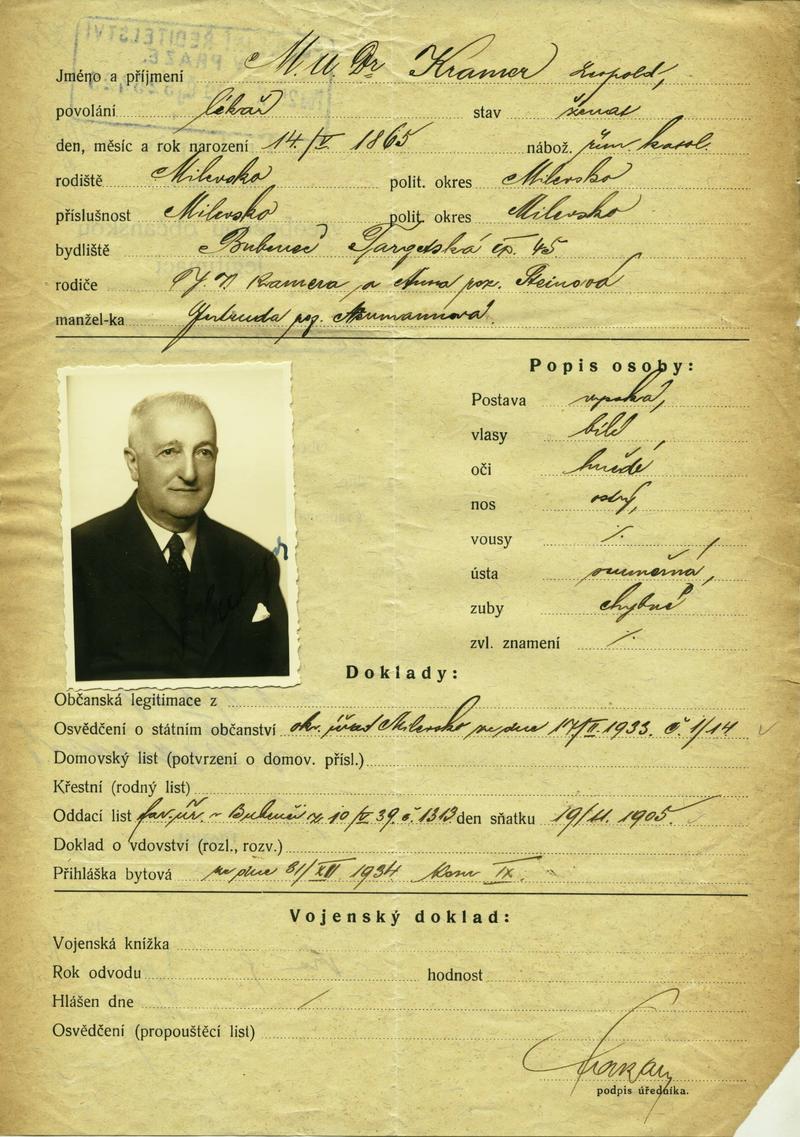 Jméno a příjmení M.U.Dr Kramer Leopold,
povolání lékař stav ženat
den, měsíc a rok narození 14./V 1865 nábož. řím. katol.
rodiště Milevsko polit. okres Milevsko
příslušnost Milevsko polit. okres Milevsko
bydliště Bubeneč čp. 45
rodiče a Anna roz. Steinová
manžel-ka Gertruda roz. Neumannová.
Popis osoby:
Postava vysoká,
vlasy bílé,
oči hnědé
nos ostrý,
vousy ./.
ústa souměrná,
zuby chybné
zvl. znamení ./.
Doklady:
Občanská legitimace z
Osvědčení o státním občanství okr. úřad Milevsko ze dne 17/II.1933. č. 1/14
Domovský list (potvrzení o domov. přísl.)
Křestní (rodný list)
Oddací list far. úř. v Bubenči z 10/V 39. č. 1313 den sňatku 19/11. 1905.
Doklad o vdovství (rozl., rozv.)
Přihláška bytová ze dne 31/XII 1934 kom IX.
Vojenský doklad:
Vojenská knížka
Rok odvodu hodnost
Hlášen dne /
Osvědčení (propouštěcí list)
podpis úředníka.